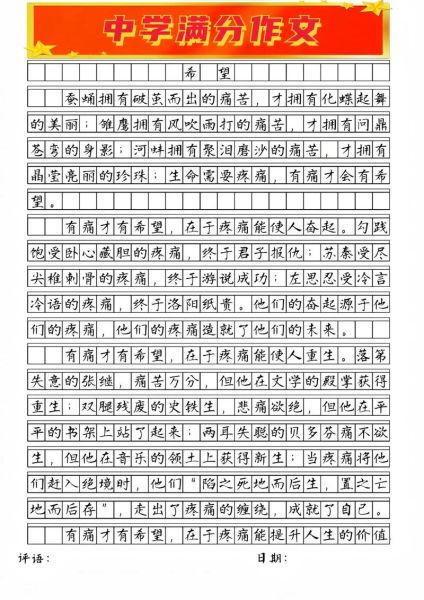 中学满分作文
希望
蚕蛹拥有破茧而出的痛苦，才拥有化蝶起舞
的美丽；雏鹰拥有风吹雨打的痛苦，才拥有问鼎
苍穹的身影；河蚌拥有聚泪磨沙的痛苦，才拥有
晶莹亮丽的珍珠；生命需要疼痛，有痛才会有希
望。
有痛才有希望，在于疼痛能使人奋起。勾践
饱受卧心藏胆的疼痛，终于君子报仇；苏秦受尽
尖椎刺骨的疼痛，终于游说成功；左思忍受冷言
冷语的疼痛，终于洛阳纸贵。他们的奋起源于他
们的疼痛，他们的疼痛造就了他们的未来。
有痛才有希望，在于疼痛能使人重生。落第
失意的张继，痛苦万分，但他在文学的殿掌获得
重生；双腿残废的史铁生，悲痛欲绝，但他在平
平的书架上站了起来；两耳失聪的贝多芬痛不欲
生，但他在音乐的领土上获得新生；当疼痛将他
们赶入绝境时，他们“陷之死地而后生，置之亡
地而后存”，走出了疼痛的缠绕，成就了自己。
有痛才有希望，在于疼痛能提升人生的价值
评语：
日期：